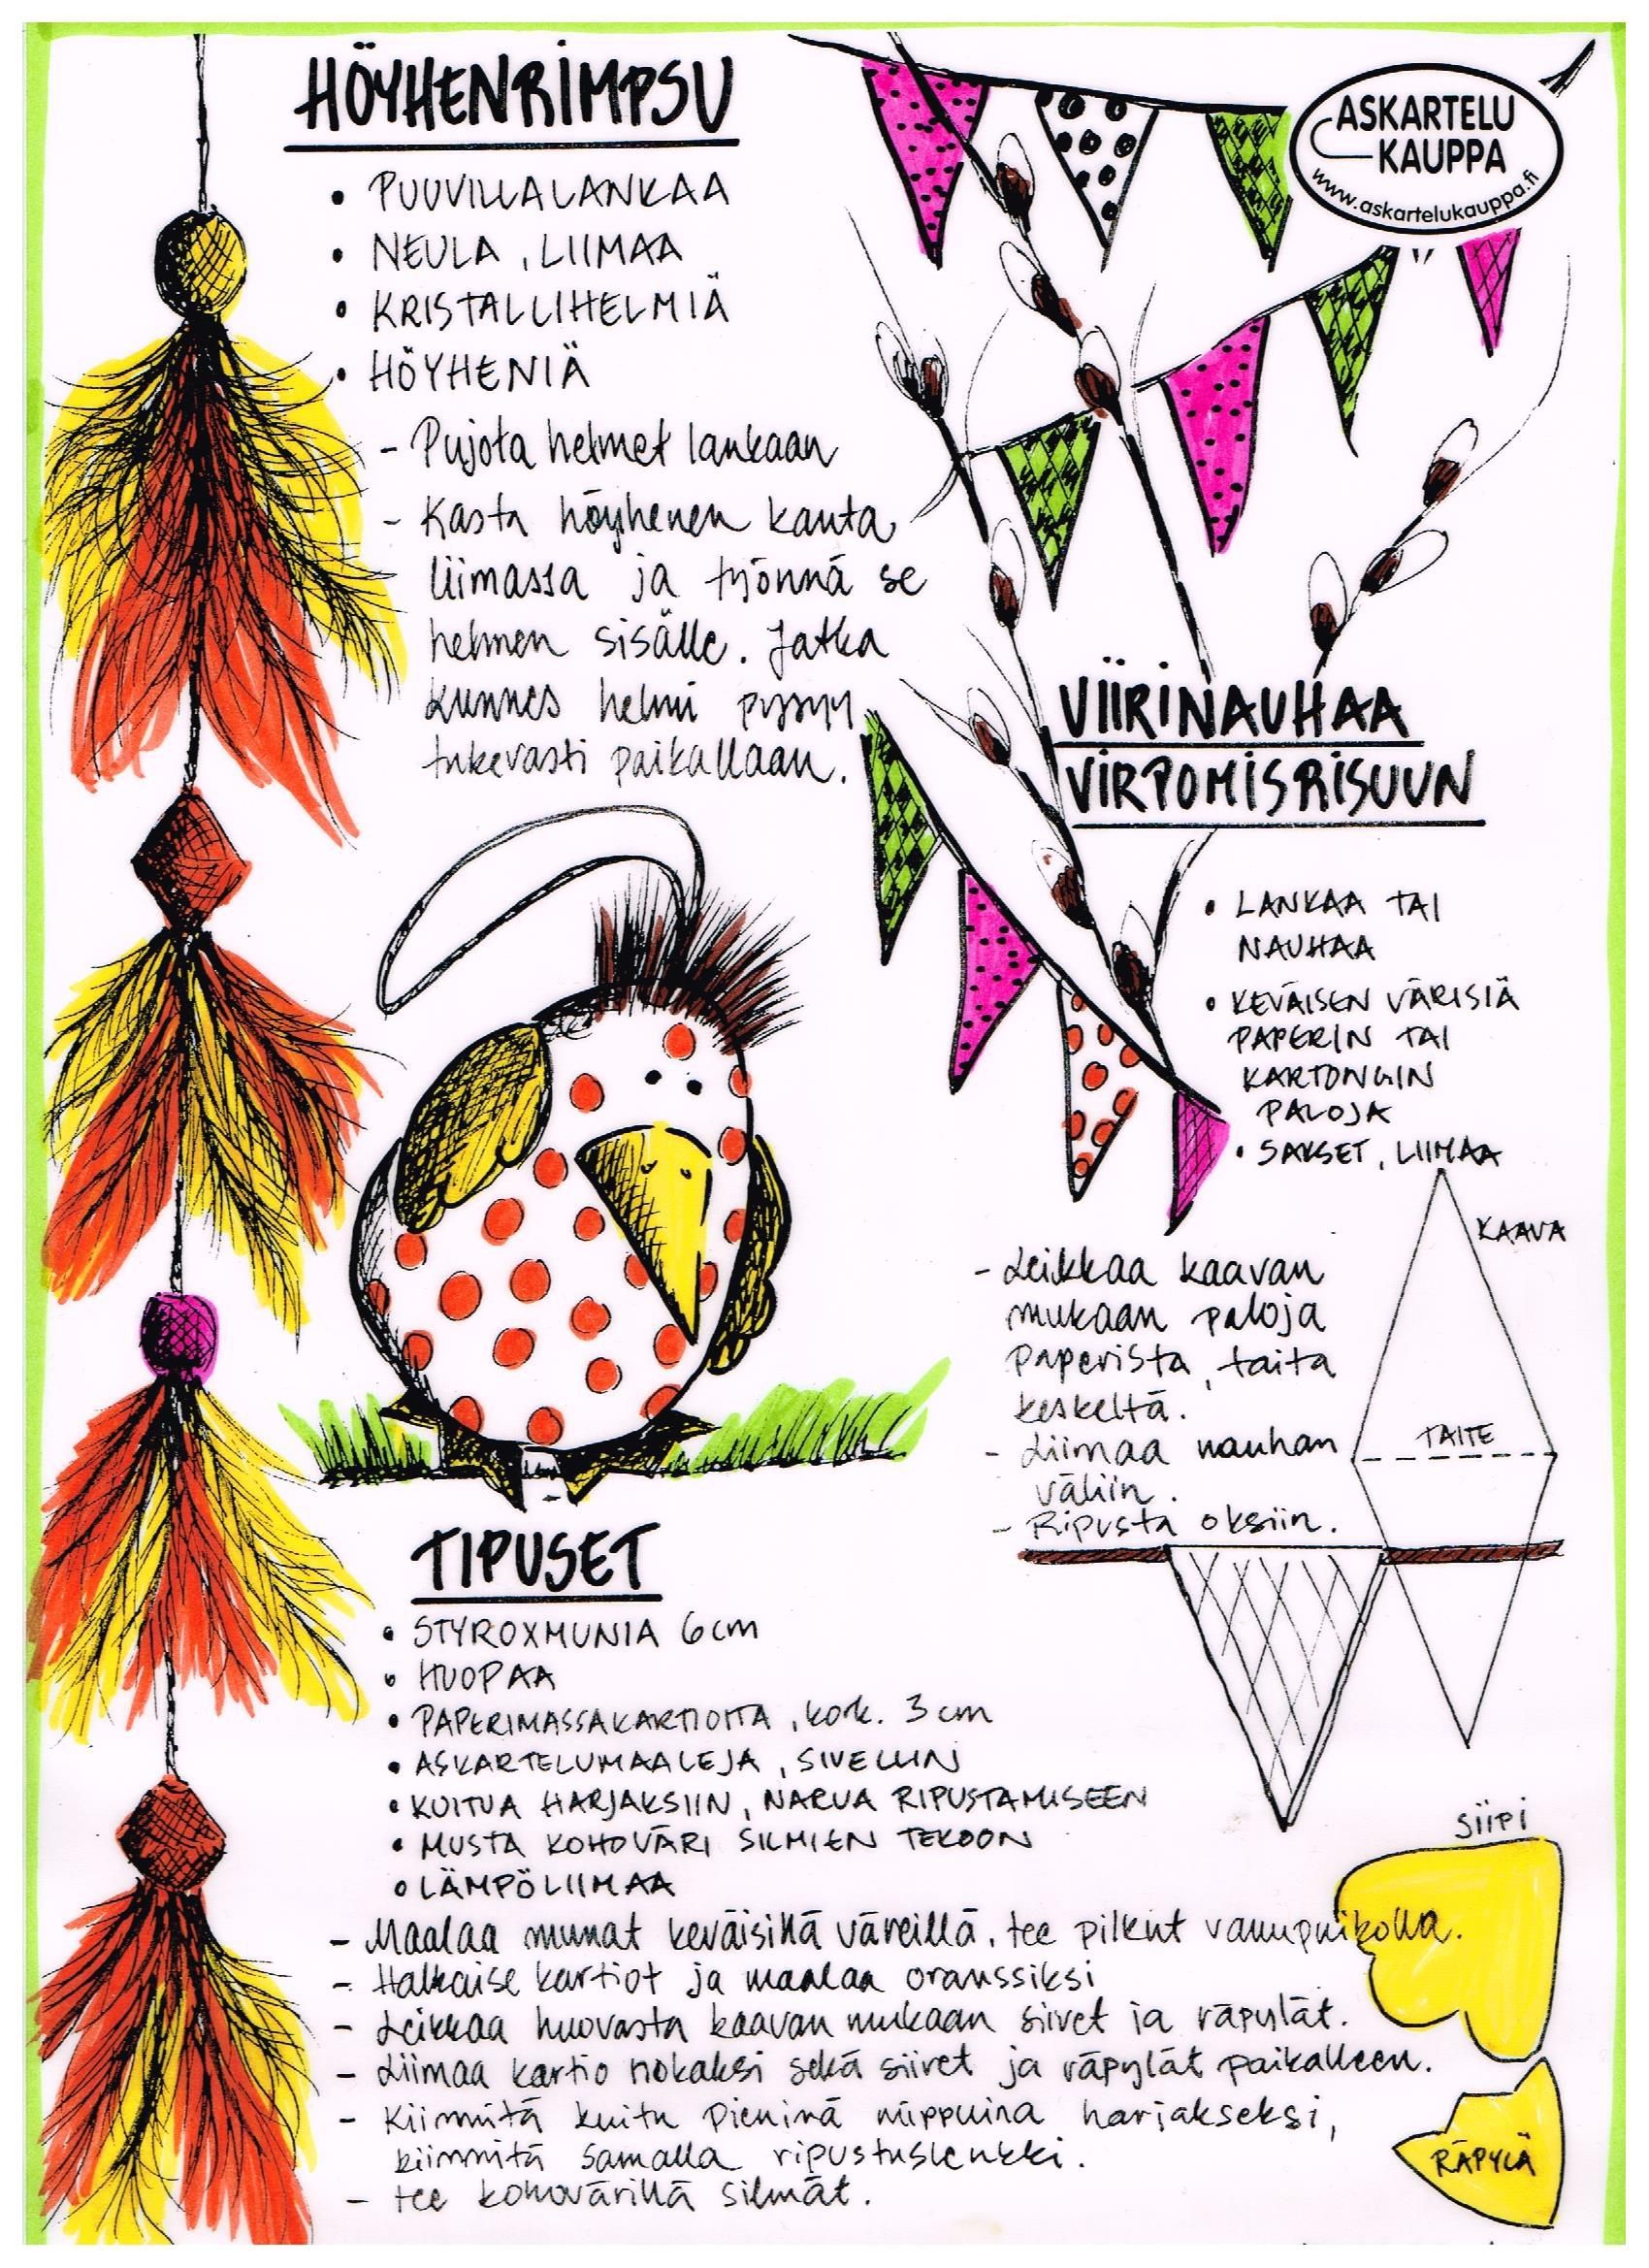 HÖYHENRIMPSU
• PUUVILLALANKAA
• NEULA, LIIMAA
• KRISTALLIHELMIÄ
• HÖYHENIÄ
- Pujota helmet lankaan
- Kasta höyhenen kanta
liimassa ja työnnä se
helmen sisälle. Jatka
kunnes helmi pysyy
tukevasti paikallaan.
ASKARTELU
KAUPPA
www.askartelukauppa.fi
VIIRINAUHAA
VIRPOMISRISUUN
• LANKAA TAI
NAUHAA
• KEVÄISEN VÄRISIÄ
PAPERIN TAI
KARTONGIN
PALOJA
• SAKSET, LIIMAA
KAAVA
- Leikkaa kaavan
mukaan paloja
paperista, taita
keskeltä.
TAITE
- Liimaa nauhan
väliin.
- Ripusta oksiin.
TIPUSET
• STYROXMUNIA 6cm
• HUOPAA
• PAPERIMASSAKARTIOITA, kork. 3 cm
• ASKARTELUMAALEJA, SIVELLIN
• KUITUA HARJAKSIIN, NARUA RIPUSTAMISEEN
• MUSTA KOHOVÄRI SILMIEN TEKOON
• LÄMPÖLIIMAA
- Maalaa munat keväisillä väreillä, tee pilkut vanupuikolla.
- Halkaise kartiot ja maalaa oranssiksi
- Leikkaa huovasta kaavan mukaan siivet ja räpylät.
- Liimaa kartio nokaksi sekä siivet ja räpylät paikalleen.
- Kiinnitä kuitu pieninä nippuina harjakseksi,
kiinnitä samalla ripustuslenkki.
- tee kohovärillä silmät.
siipi
RÄPYLÄ